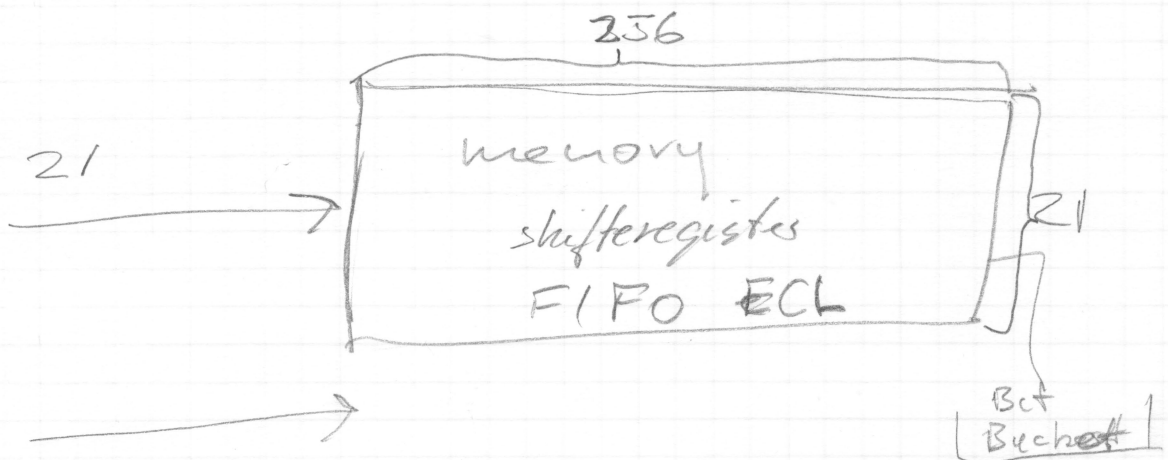 256
21
memory
shifteregister
21
FIFO ECL
Bet
Bucket